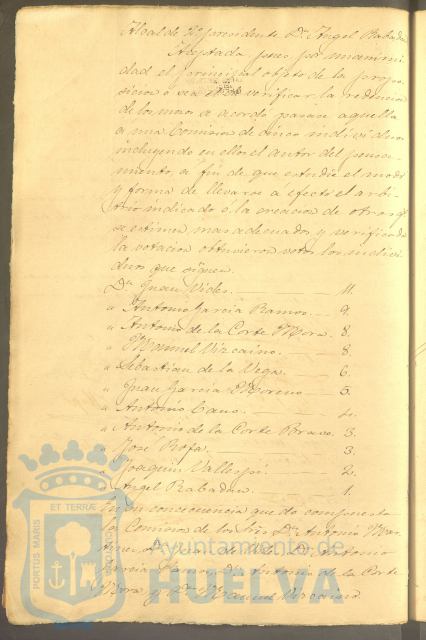 Alcalde Vicepresidente Dn. Angel Rabadan
Aceptada pues por unanimi-
dad el principal objeto de la propo-
sicion ó sea el verificar la redencion
de los mozos se acordó pasase aquella
a una Comision de cinco individuos
incluyendo en ellos el autor del pensa-
miento, a fin de que estudie el modo
y forma de llevarse a efecto el arbi-
trio indicado ó la creacion de otros q.
se estimen mas adecuados, y verificada
la votacion obtuvieron votos los indivi-
duos que siguen.
Dn. Juan Vides 11.
" Antonio Garcia Ramos 9.
" Antonio de la Corte Mora 8.
" Manuel Vizcaino 8.
" Sebastian de la Vega 6.
" Juan Garcia Moreno 5.
" Antonio Cano
" Antonio de la Corte Bravo 3.
" José Rofa 3.
" Joaquin Vallejo 2.
" Angel Rabadan 1.
En su consecuencia quedó compuesta
la Comision de los Sres. Dn. Antonio
Dn. Juan Dn. Antonio
Garcia Ramos, Dn. Antonio de la Corte
Mora y Dn. Manuel Vizcaino
PORTUS MARIS ET TERRAE CUSTODIA
Ayuntamiento de
HUELVA